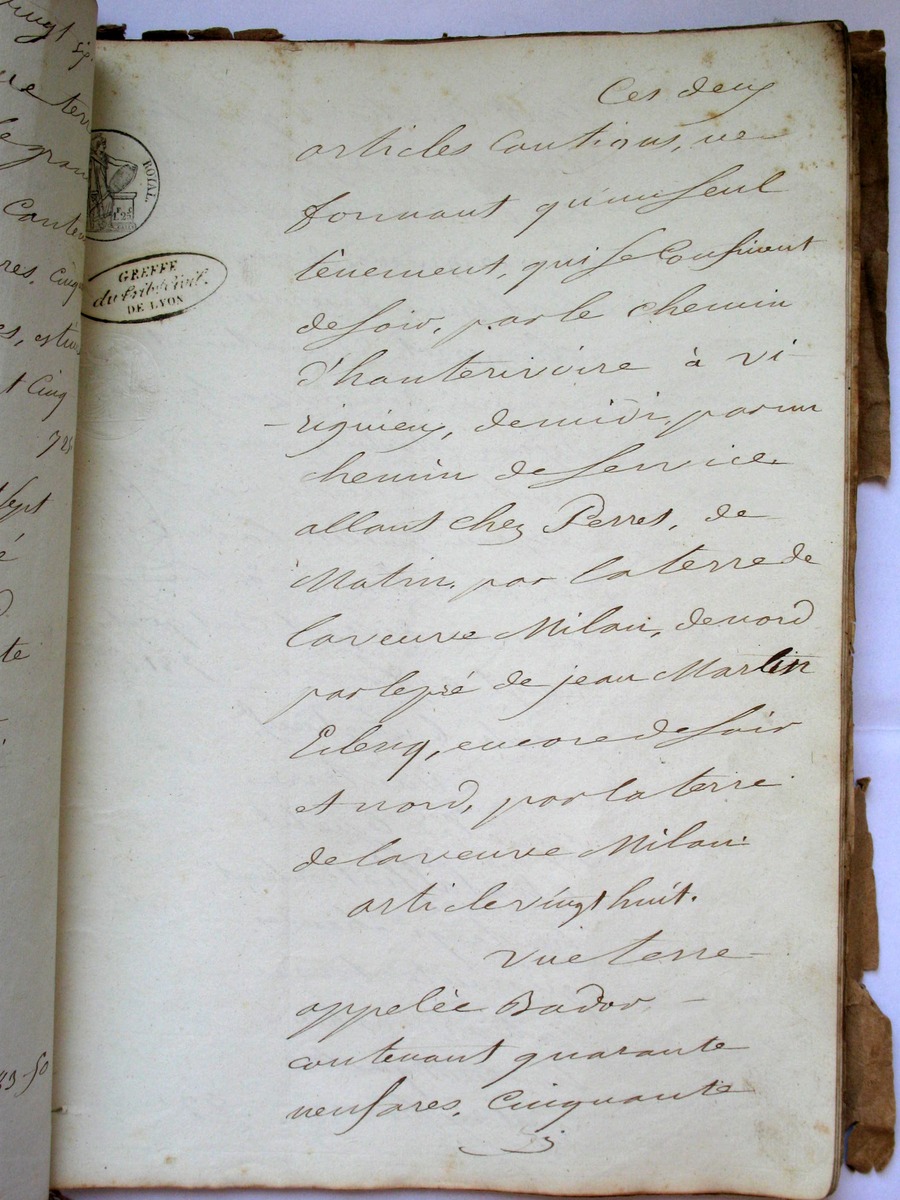 ROYAL.
1.25
GREFFE
du trib. civil.
DE LYON
Ces deux
articles contigus, ne
formant qu'un seul
tènement, qui se confinent
de soir, par le chemin
d'hauterivoire à vi-
rigneux, de midi, par un
chemin de service
allant chez Perret, de
Matin, par la terre de
la veuve Milan, de nord
par le pré de jean Marlin
encore de soir
et nord, par la terre
de la veuve Milan.
article vingt huit.
une terre
appelée Bador
contenant quarante
neuf ares, Cinquante